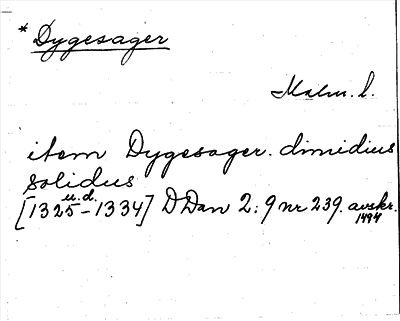 * Dygesager
Malm. l.
item Dygesager. dimidius
solidus
u.d.
[1325-1334] DDan 2:9 nr 239. avskr.
1494